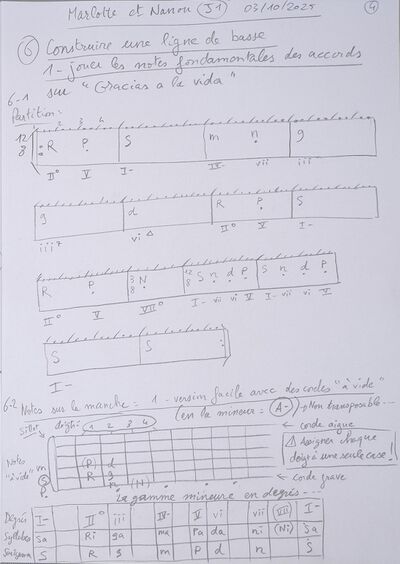 Marlotte et Nanon (J1) 03/10/2025 (4)
⑥ Construire une ligne de basse
1 - jouer les notes fondamentales des accords
sur "Gracias a la vida"
6-1
Partition :
2 3 4
12 8 R P S m n g
II° V I- IV- vii iii
g d R P S
iii7 vi Δ II° V I-
R P 3 8 N 12 8 S n d P S n d P
II° V VII° I- vii vi V I- vii vi V
S S
I-
6-2 Notes sur le manche : 1 - version facile avec des cordes "à vide"
(en la mineur = A-) → Non transposable...
Sillet doigts : 1 2 3 4 ← corde aigue
⚠ Assigner chaque
doigt à une seule case !
Notes
"à vide" m
S (P) d
P. R g
n (N) ← corde grave
La gamme mineure en degrés ...
Degrés I- II° iii IV- V vi vii VII I-
Syllabes Sa Ri ga ma Pa da ni (Ni) Sa
Sargam S R g m P d n S